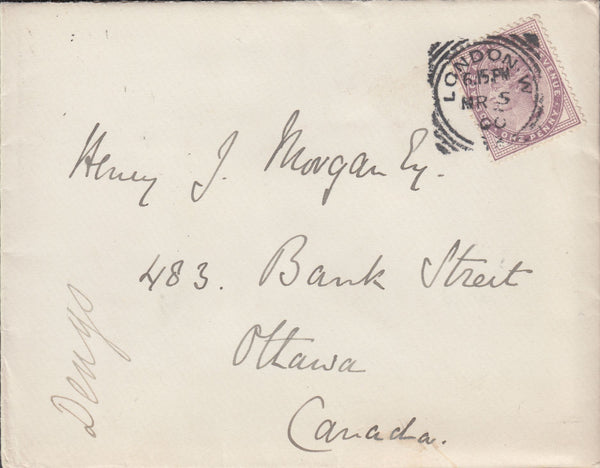 LONDON.W
6.15PM
MR 5
00
ONE PENNY
Henry J. Morgan Esq.
483. Bank Street
Ottawa
Canada.
Denys